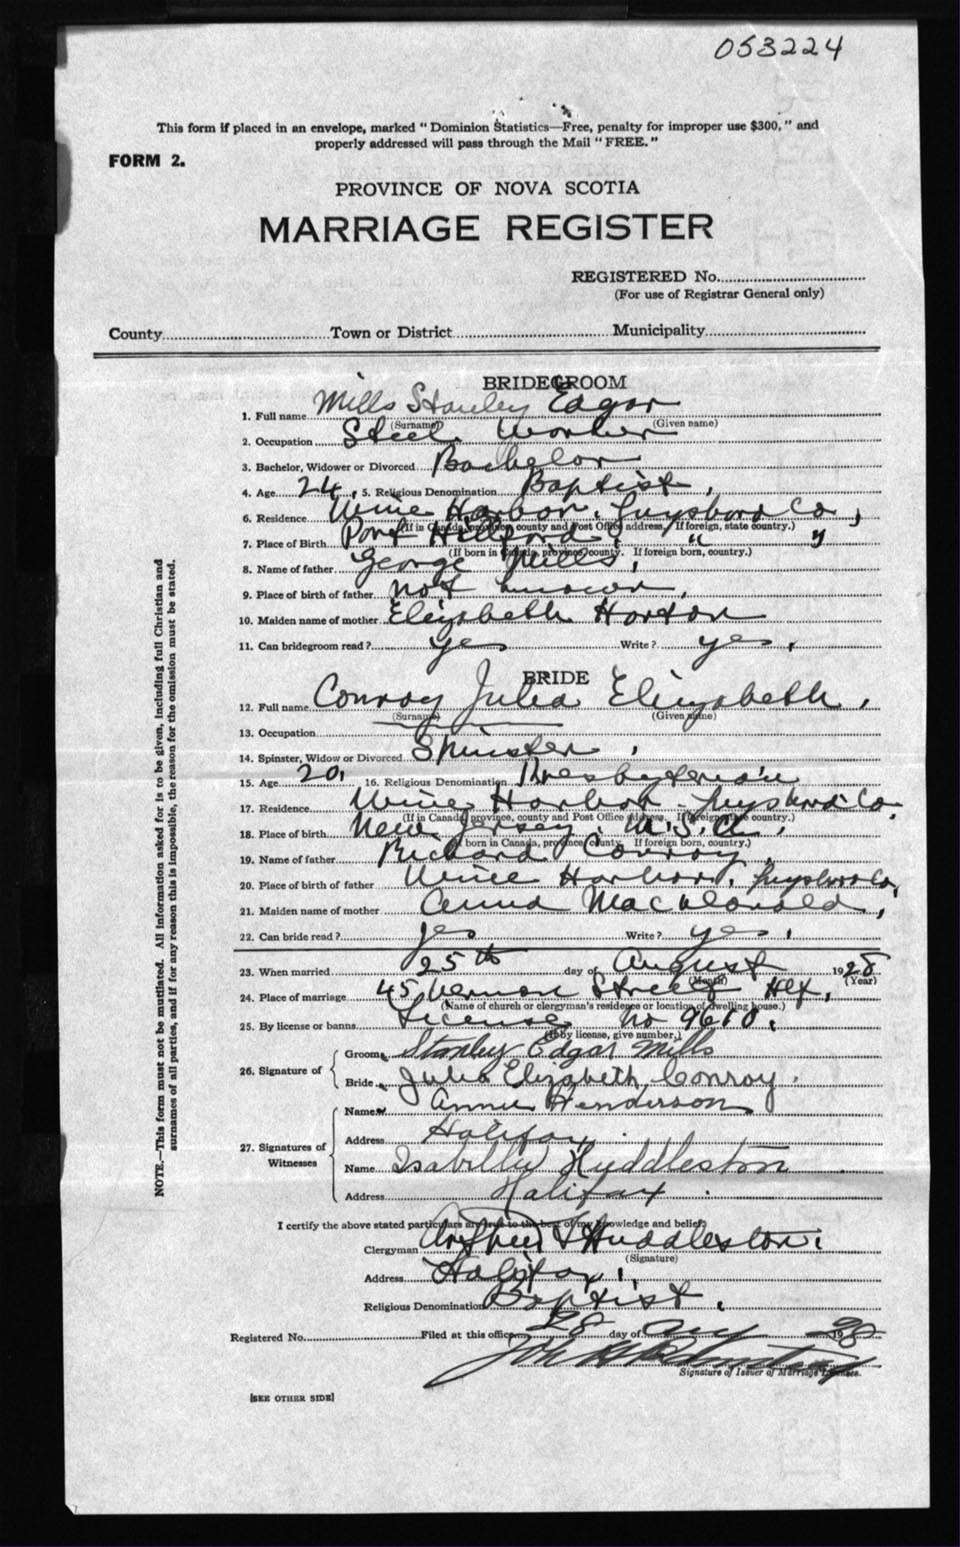 053224
This form if placed in an envelope, marked " Dominion Statistics—Free, penalty for improper use $300, " and
properly addressed will pass through the Mail " FREE. "
FORM 2.
PROVINCE OF NOVA SCOTIA
MARRIAGE REGISTER
REGISTERED No.
(For use of Registrar General only)
County Town or District Municipality
BRIDEGROOM
1. Full name Mills Stanley Edgar
(Surname) (Given name)
2. Occupation Steel Worker
3. Bachelor, Widower or Divorced Bachelor
4. Age 24, 5. Religious Denomination Baptist,
6. Residence Wine Harbor, Guysboro Co,
(If in Canada, province, county and Post Office address, If foreign, state country.)
7. Place of Birth Port Hilford, " "
(If born in Canada, province, county. If foreign born, country.)
8. Name of father George Mills,
9. Place of birth of father not known,
10. Maiden name of mother Elizabeth Horton
11. Can bridegroom read ? yes Write ? yes,
BRIDE
12. Full name Conroy Julia Elizabeth,
(Surname) (Given name)
13. Occupation
14. Spinster, Widow or Divorced Spinster,
15. Age 20, 16. Religious Denomination Presbyterian
17. Residence Wine Harbor - Guysboro Co,
(If in Canada, province, county and Post Office address. If foreign, state country.)
18. Place of birth New Jersey, U.S.A.,
(If born in Canada, province, county. If foreign born, country.)
19. Name of father Richard Conroy,
20. Place of birth of father Wine Harbor, Guysboro Co,
21. Maiden name of mother Anna MacDonald,
22. Can bride read ? yes Write ? yes,
23. When married 25th day of August 1928
(Month) (Year)
24. Place of marriage 45 Vernon Street Hfx,
(Name of church or clergyman's residence or location of dwelling house.)
25. By license or banns License No 9610.
(If by license, give number.)
26. Signature of
Groom Stanley Edgar Mills
Bride Julia Elizabeth Conroy.
27. Signatures of Witnesses
Name Annie Henderson
Address Halifax.
Name Isabella Huddleston
Address Halifax.
I certify the above stated particulars are true to the best of my knowledge and belief.
Clergyman Huddleston.
(Signature)
Address Halifax,
Religious Denomination Baptist.
Registered No. Filed at this office 28 day of 1928
Signature of Issuer of Marriage Licenses.
[SEE OTHER SIDE]
NOTE.—This form must not be mutilated. All information asked for is to be given, including full Christian and
surnames of all parties, and if for any reason this is impossible, the reason for the omission must be stated.